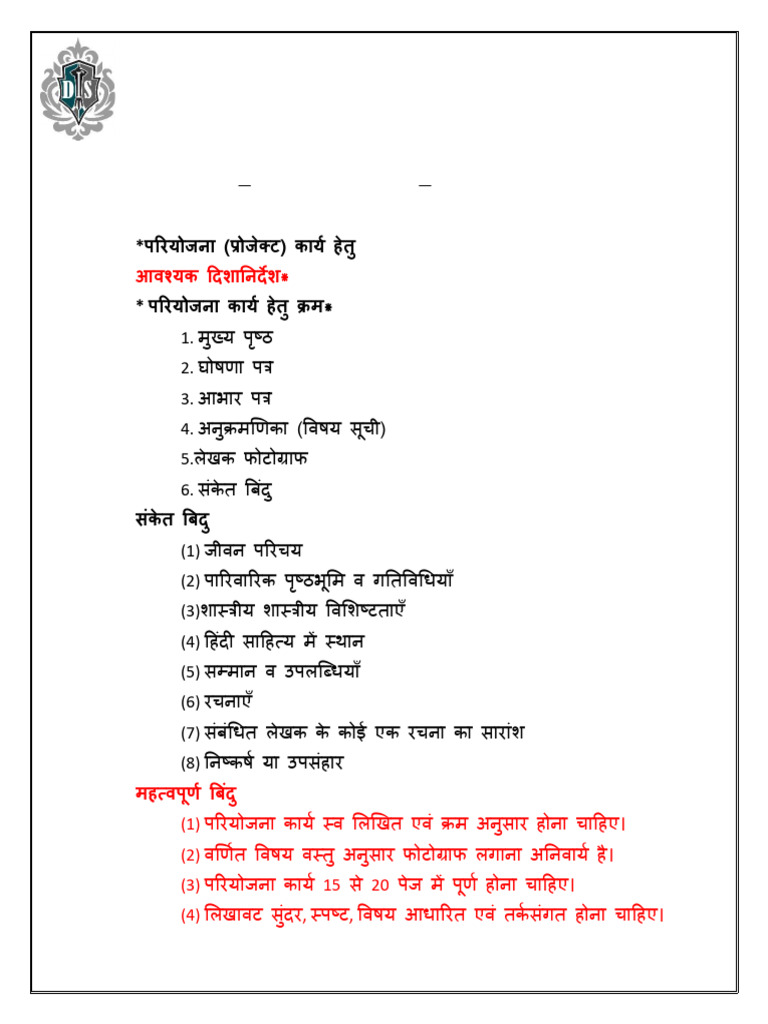 DIS
– –
*परियोजना (प्रोजेक्ट) कार्य हेतु
आवश्यक दिशानिर्देश*
* परियोजना कार्य हेतु क्रम*
1. मुख्य पृष्ठ
2. घोषणा पत्र
3. आभार पत्र
4. अनुक्रमणिका (विषय सूची)
5.लेखक फोटोग्राफ
6. संकेत बिंदु
संकेत बिदु
(1) जीवन परिचय
(2) पारिवारिक पृष्ठभूमि व गतिविधियाँ
(3)शास्त्रीय शास्त्रीय विशिष्टताएँ
(4) हिंदी साहित्य में स्थान
(5) सम्मान व उपलब्धियाँ
(6) रचनाएँ
(7) संबंधित लेखक के कोई एक रचना का सारांश
(8) निष्कर्ष या उपसंहार
महत्वपूर्ण बिंदु
(1) परियोजना कार्य स्व लिखित एवं क्रम अनुसार होना चाहिए।
(2) वर्णित विषय वस्तु अनुसार फोटोग्राफ लगाना अनिवार्य है।
(3) परियोजना कार्य 15 से 20 पेज में पूर्ण होना चाहिए।
(4) लिखावट सुंदर, स्पष्ट, विषय आधारित एवं तर्कसंगत होना चाहिए।